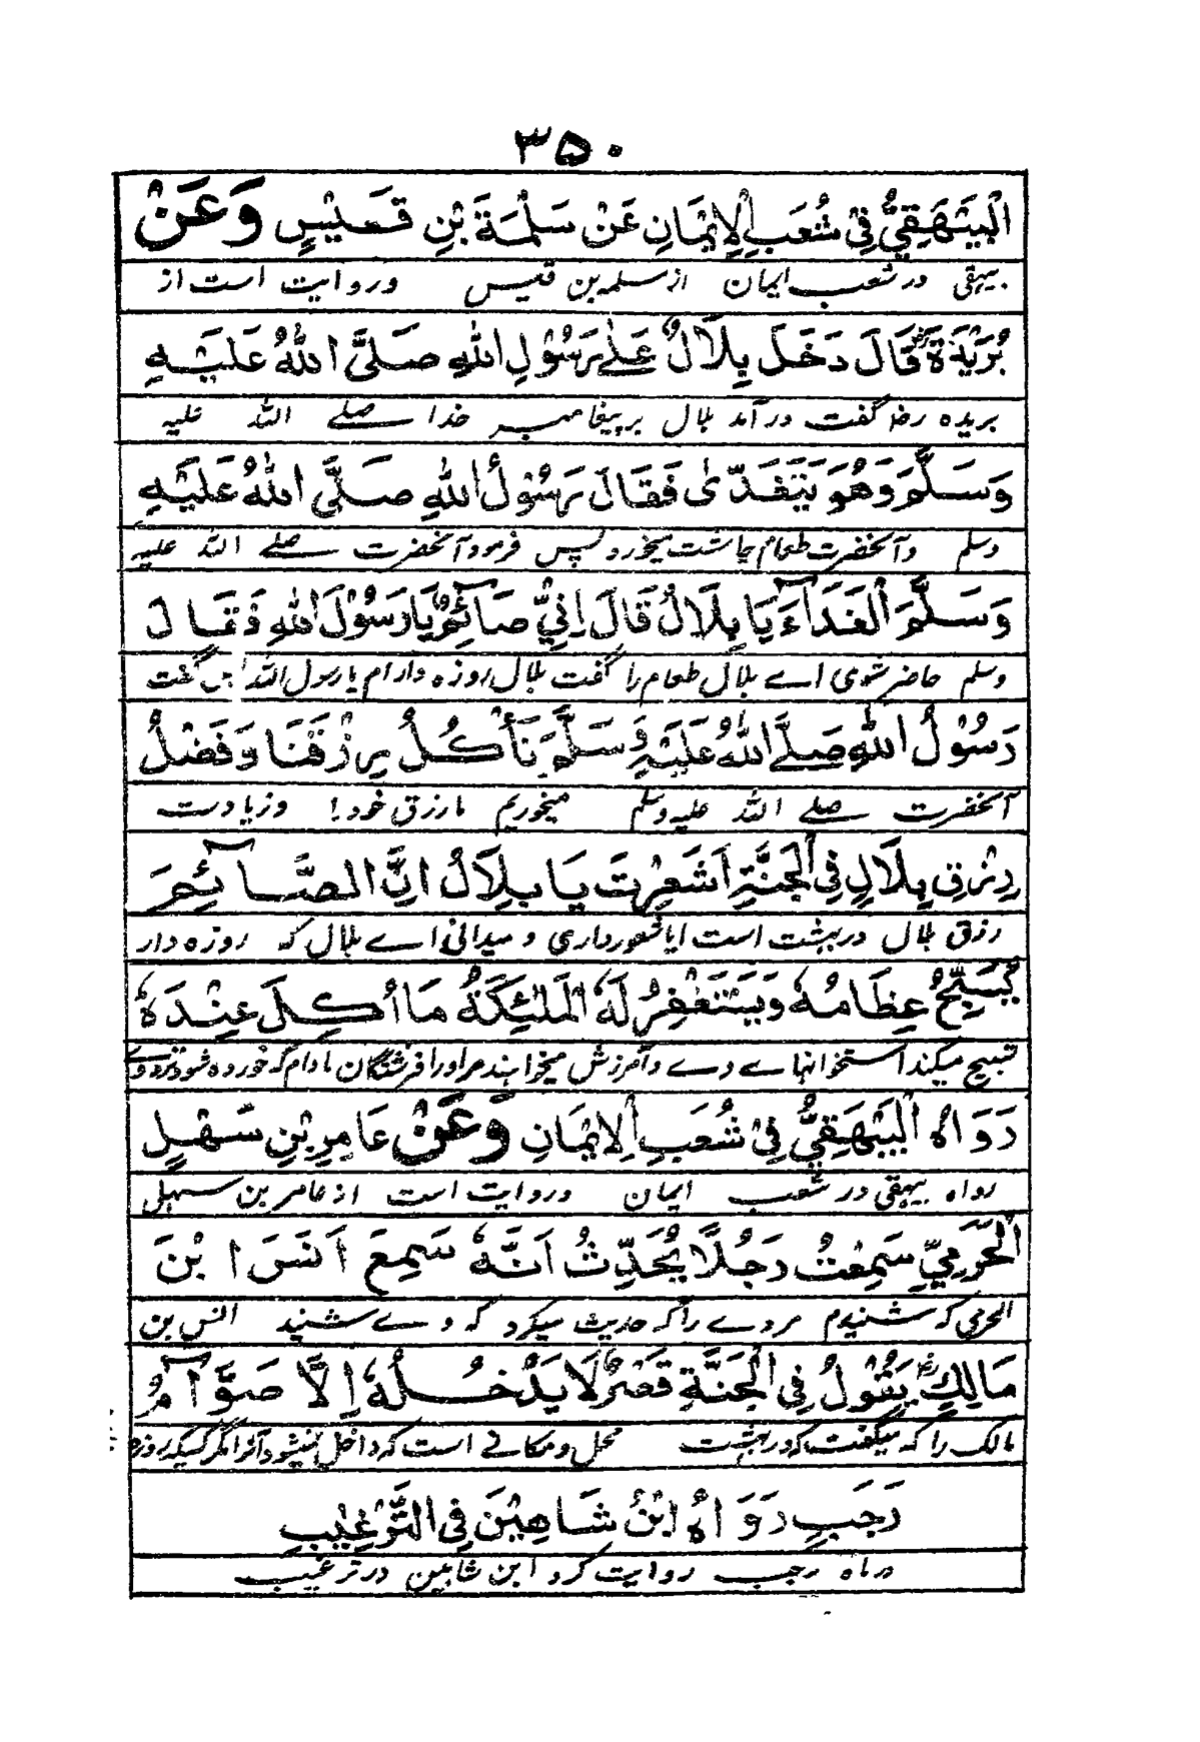 ۳۵۰
الْبَيْهَقِيُّ فِيْ شُعَبِ الْاِيْمَانِ عَنْ سَلْمَةَ بْنِ قَيْسٍ وَعَنْ
بیہقی در شعب ایمان از سلمہ بن قیس و روایت است از
بُرَيْدَةَ قَالَ دَخَلَ بِلَالٌ عَلٰى رَسُوْلِ اللّٰهِ صَلَّى اللّٰهُ عَلَيْهِ
بریدہ رضا گفت در آمد بلال بر پیغامبر خدا صلے اللہ علیہ
وَسَلَّمَ وَهُوَ يَتَغَدّٰى فَقَالَ رَسُوْلُ اللّٰهِ صَلَّى اللّٰهُ عَلَيْهِ
وسلم و آنحضرت طعام چاشت میخورد پس فرمود آنحضرت صلے اللہ علیہ
وَسَلَّمَ الْغَدَآءَ يَا بِلَالُ قَالَ اِنِّيْ صَآئِمٌ يَا رَسُوْلَ اللّٰهِ فَقَالَ
وسلم حاضر شوی اے بلال طعام را گفت بلال روزہ دارم یا رسول اللہ پس گفت
رَسُوْلُ اللّٰهِ صَلَّى اللّٰهُ عَلَيْهِ وَسَلَّمَ نَأْكُلُ رِزْقَنَا وَفَضْلُ
آنحضرت صلے اللہ علیہ وسلم میخوریم ما رزق خود را و زیادت
رِزْقِ بِلَالٍ فِي الْجَنَّةِ اَشَعِرْتَ يَا بِلَالُ اِنَّ الصَّآئِمَ
رزق بلال در بہشت است ایا شعور داری و میدانی اے بلال کہ روزہ دار
يُسَبِّحُ عِظَامُهٗ وَيَسْتَغْفِرُ لَهُ الْمَلٰئِكَةُ مَا اُكِلَ عِنْدَهٗ
تسبیح میکند استخوانہاے وے و آمرزش میخواہند مر او را فرشتگان مادام کہ خوردہ شود نزد وے
رَوَاهُ الْبَيْهَقِيُّ فِيْ شُعَبِ الْاِيْمَانِ وَعَنْ عَامِرِ بْنِ سَهْلٍ
رواہ بیہقی در شعب ایمان و روایت است از عامر بن سہل
الْحَرَمِيِّ سَمِعْتُ رَجُلًا يُحَدِّثُ اَنَّهٗ سَمِعَ اَنَسَ ابْنَ
الحرمی کہ شنیدم مردے را کہ حدیث میکرد کہ وے شنید انس بن
مَالِكٍ يَقُوْلُ فِي الْجَنَّةِ قَصْرٌ لَا يَدْخُلُهٗ اِلَّا صَوَّامُ
مالک را کہ میگفت کہ در بہشت محل و مکانے است کہ داخل نمیشود آنرا مگر کسیکہ روزہ
رَجَبٍ رَوَاهُ ابْنُ شَاهِيْنَ فِي التَّرْغِيْبِ
در ماہ رجب روایت کرد ابن شاہین در ترغیب